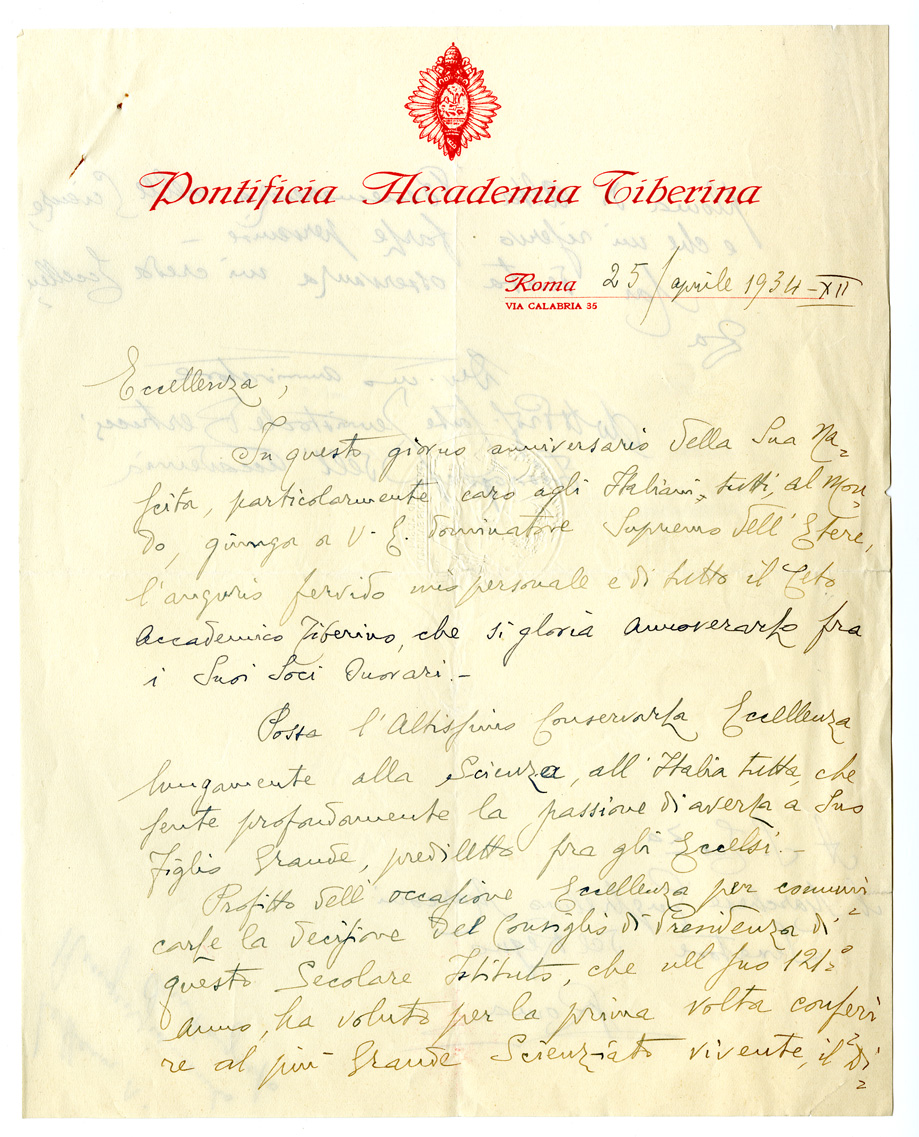 Pontificia Accademia Tiberina
Roma 25/aprile 1934-XII
VIA CALABRIA 35
Eccellenza,
In questo giorno anniversario della Sua Na=
scita, particolarmente caro agli Italiani tutti, al Mon=
do, giunga a V. E. dominatore Supremo dell'Etere,
l'augurio fervido mio personale e di tutto il Ceto
Accademico Tiberino, che si gloria annoverarLo fra
i Suoi Soci Onorari.-
Possa l'Altissimo ConservarLa Eccellenza
lungamente alla Scienza, all'Italia tutta, che
sente profondamente la passione di averLa a Suo
Figlio Grande, prediletto fra gli Eccelsi.-
Profitto dell'occasione Eccellenza per comuni=
carLe la decisione del Consiglio di Presidenza di
questo Secolare Istituto, che nel suo 121.º
Anno, ha voluto per la prima volta conferi=
re al più Grande Scienziato vivente, il "Di=